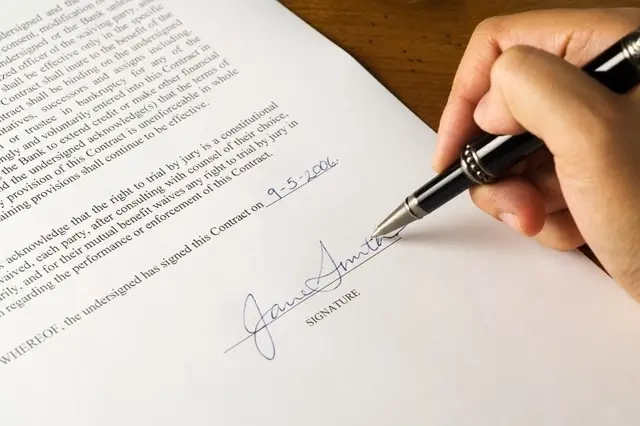 ndersigned and the
consent, modification o
ndersigned or the Bank unless
zed officer of the waiving party, and
shall be effective only in the specific
Contract shall inure to the benefit of the
tract shall be binding on the undersigned
ntatives, successors and assigns including,
or trustee in bankruptcy for any of the
ngly and voluntarily entered into this Contract in
the Bank to extend credit or make other financial
d the undersigned acknowledge(s) that the terms of
y provision of this Contract is unenforceable in whole
aining provisions shall continue to be effective.
k acknowledge that the right to trial by jury is a constitutional
waived, each party, after consulting with counsel of their choice,
arily, and for their mutual benefit waives any right to trial by jury in
n regarding the performance or enforcement of this Contract.
WHEREOF, the undersigned has signed this Contract on 9-5-2006.
Jane Smith
SIGNATURE